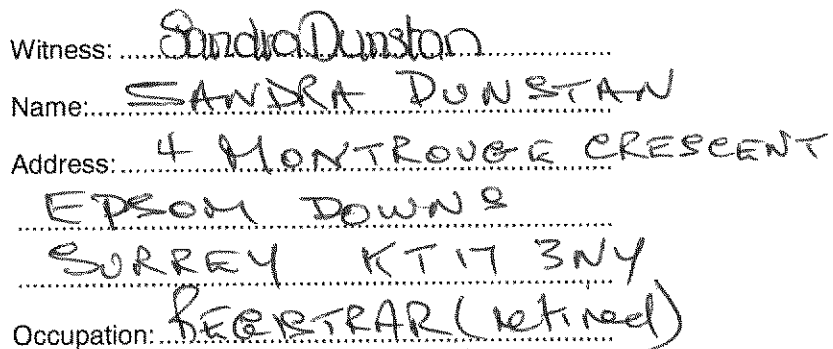 Witness: Sandra Dunstan
Name: SANDRA DUNSTAN
Address: 4 MONTROUGE CRESCENT
EPSOM DOWNS
SURREY KT17 3NY
Occupation: REGISTRAR (retired)